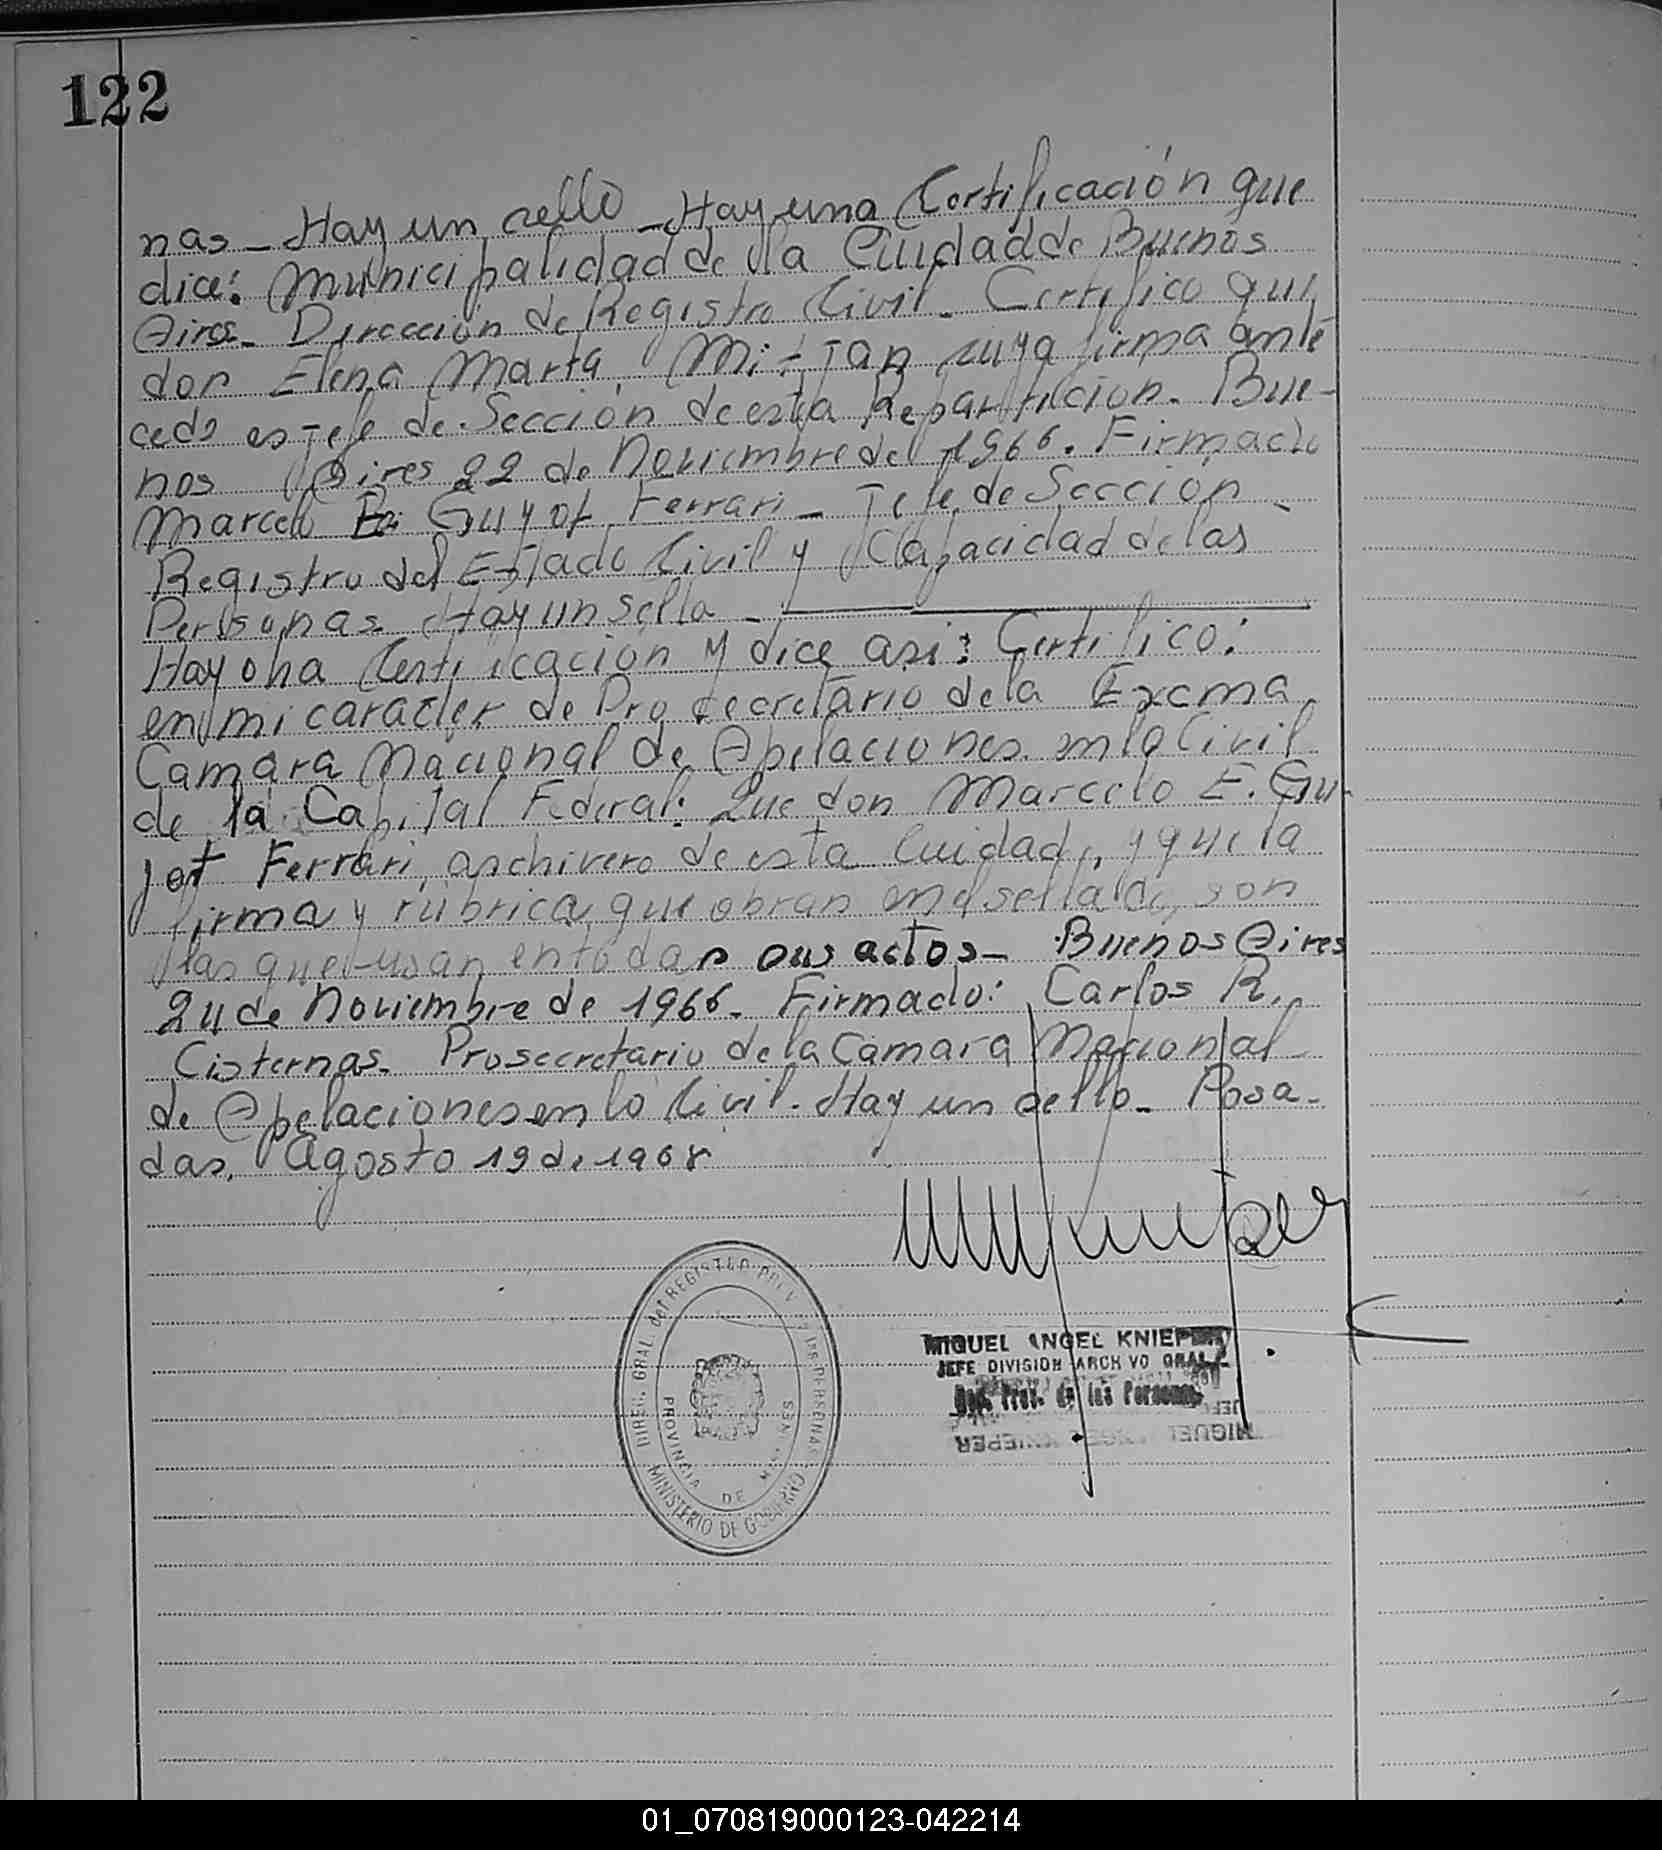 122
nas - Hay un sello - Hay una Certificación que
dice: Municipalidad de la Ciudad de Buenos
Aires. Dirección de Registro Civil. Certifico que
don Elena Marta Mitjan cuya firma ante
cede es Jefe de Sección de esta Repartición. Bue-
nos Aires 22 de Noviembre de 1966. Firmado
Marcelo E. Guyot Ferrari - Jefe de Sección
Registro del Estado Civil y Capacidad de las
Personas Hay un sello -
Hay una Certificación y dice asi: Certifico:
en mi caracter de Pro secretario de la Excma
Camara Nacional de Apelaciones en lo Civil
de la Capital Federal: Que don Marcelo E. Gu-
yot Ferrari, archivero de esta Cuidad, y que la
firma y rúbrica que obran en el sellado, son
las que usan en todas sus actos - Buenos Aires
24 de Noviembre de 1966. Firmado: Carlos R.
Cisternas. Prosecretario de la Camara Nacional
de Apelaciones en lo Civil. Hay un sello - Posa-
das, Agosto 19 de 1968
DIREC. GRAL. del REGISTRO PROV. de las PERSONAS
PROVINCIA DE MISIONES
MINISTERIO DE GOBIERNO
MIGUEL ANGEL KNIEPER
JEFE DIVISION ARCHIVO GRAL.
Prov. de las Personas
01_070819000123-042214